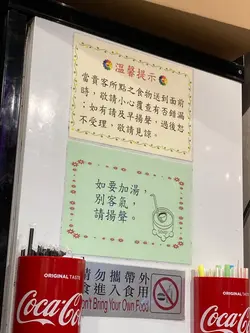 溫馨提示
當貴客所點之食物送到面前
時，敬請小心覆查有否錯漏
；如有請及早揚聲，過後恕
不受理，敬請見諒。
如要加湯，
別客氣，
請揚聲。
請勿攜帶外
食進入食用
Don't Bring Your Own Food
ORIGINAL TASTE
Coca-Cola
ORIGINAL TASTE
Coca